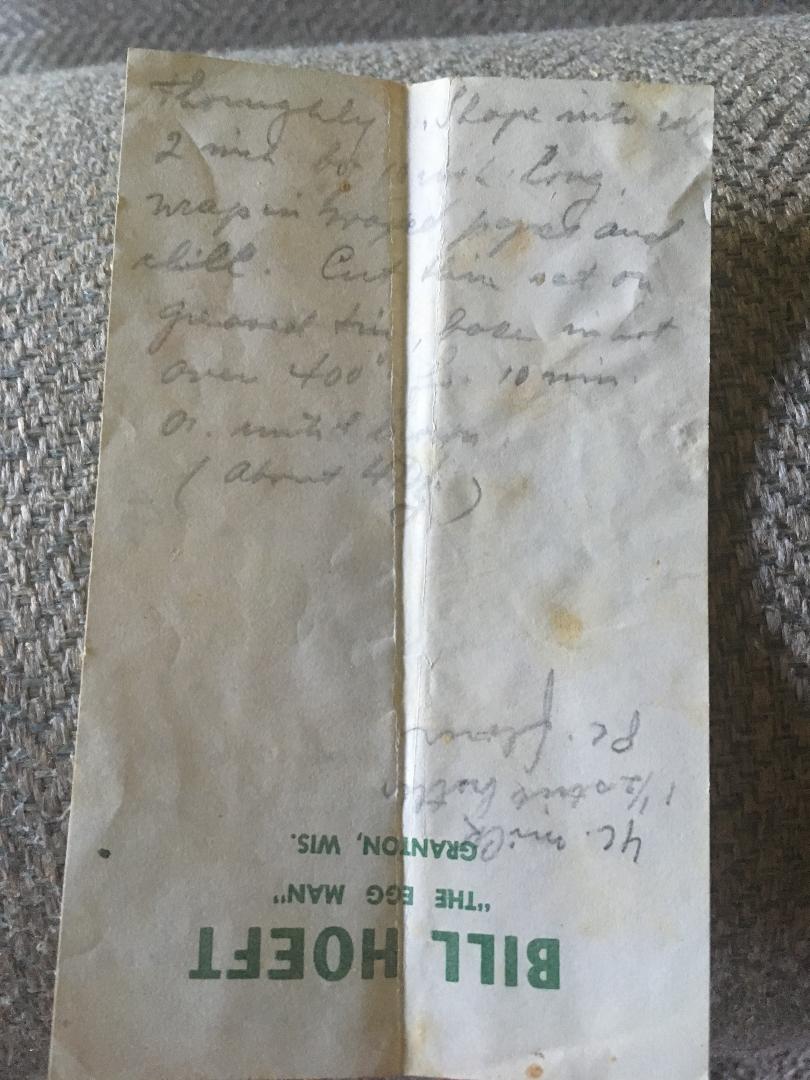 Thoroughly. Shape into roll
2 inch by inch long.
Wrap in waxed paper and
chill. Cut thin set on
greased tin, bake in hot
oven 400° for 10 min.
Or until brown.
(About 4
BILL HOEFT
"THE EGG MAN"
GRANTON, WIS.
4c. milk
1½ stick butter
8c. flour